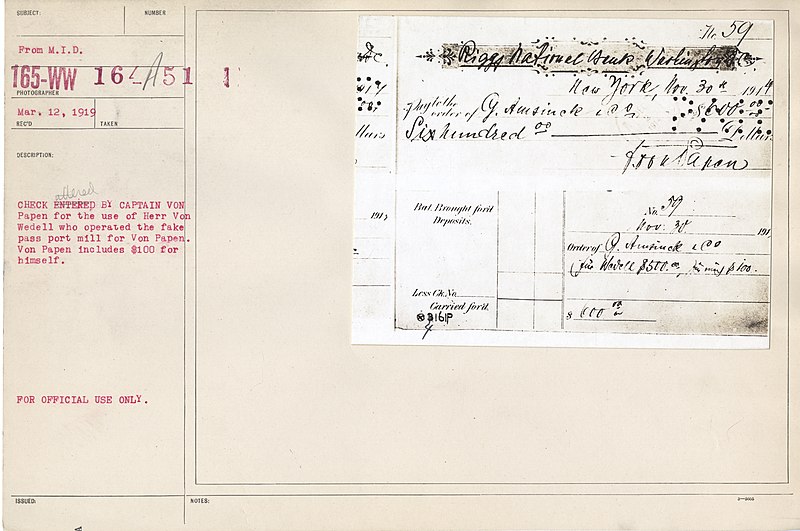 SUBJECT:
NUMBER
From M.I.D.
165-WW 164A51 1
PHOTOGRAPHER
Mar. 12, 1919
REC'D
TAKEN
DESCRIPTION:
altered
CHECK ENTERED BY CAPTAIN VON
Papen for the use of Herr Von
Wedell who operated the fake
pass port mill for Von Papen.
Von Papen includes $100 for
himself.
FOR OFFICIAL USE ONLY.
ISSUED:
NOTES:
No. 59
Riggs National Bank Washington D.C.
New York, Nov. 30th 1914
Pay to the
order of G. Amsinck & Co $600.00
Six hundred 00 Dollars
von Papen
191
Bal. Brought for'd
Deposits.
Less Ck. No.
Carried for'd.
3161P
4
No. 59
Nov. 30 191
Order of G. Amsinck & Co
(für Wedell $500.00, für mich $100.
$ 600 00